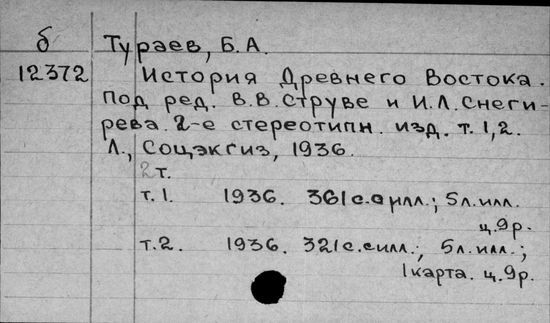 б Тураев, Б.А.
12372 История Древнего Востока.
Под ред. В.В.Струве и И.Л.Снеги-
рева. 2-е стереотипн. изд. т. 1,2.
Л., Соцэкгиз, 1936.
2 т.
т. 1. 1936. 361 с. с илл.; 5 л. илл.
ц. 9 р.
т. 2. 1936. 321 с. с илл.; 5 л. илл.;
1 карта. ц. 9 р.